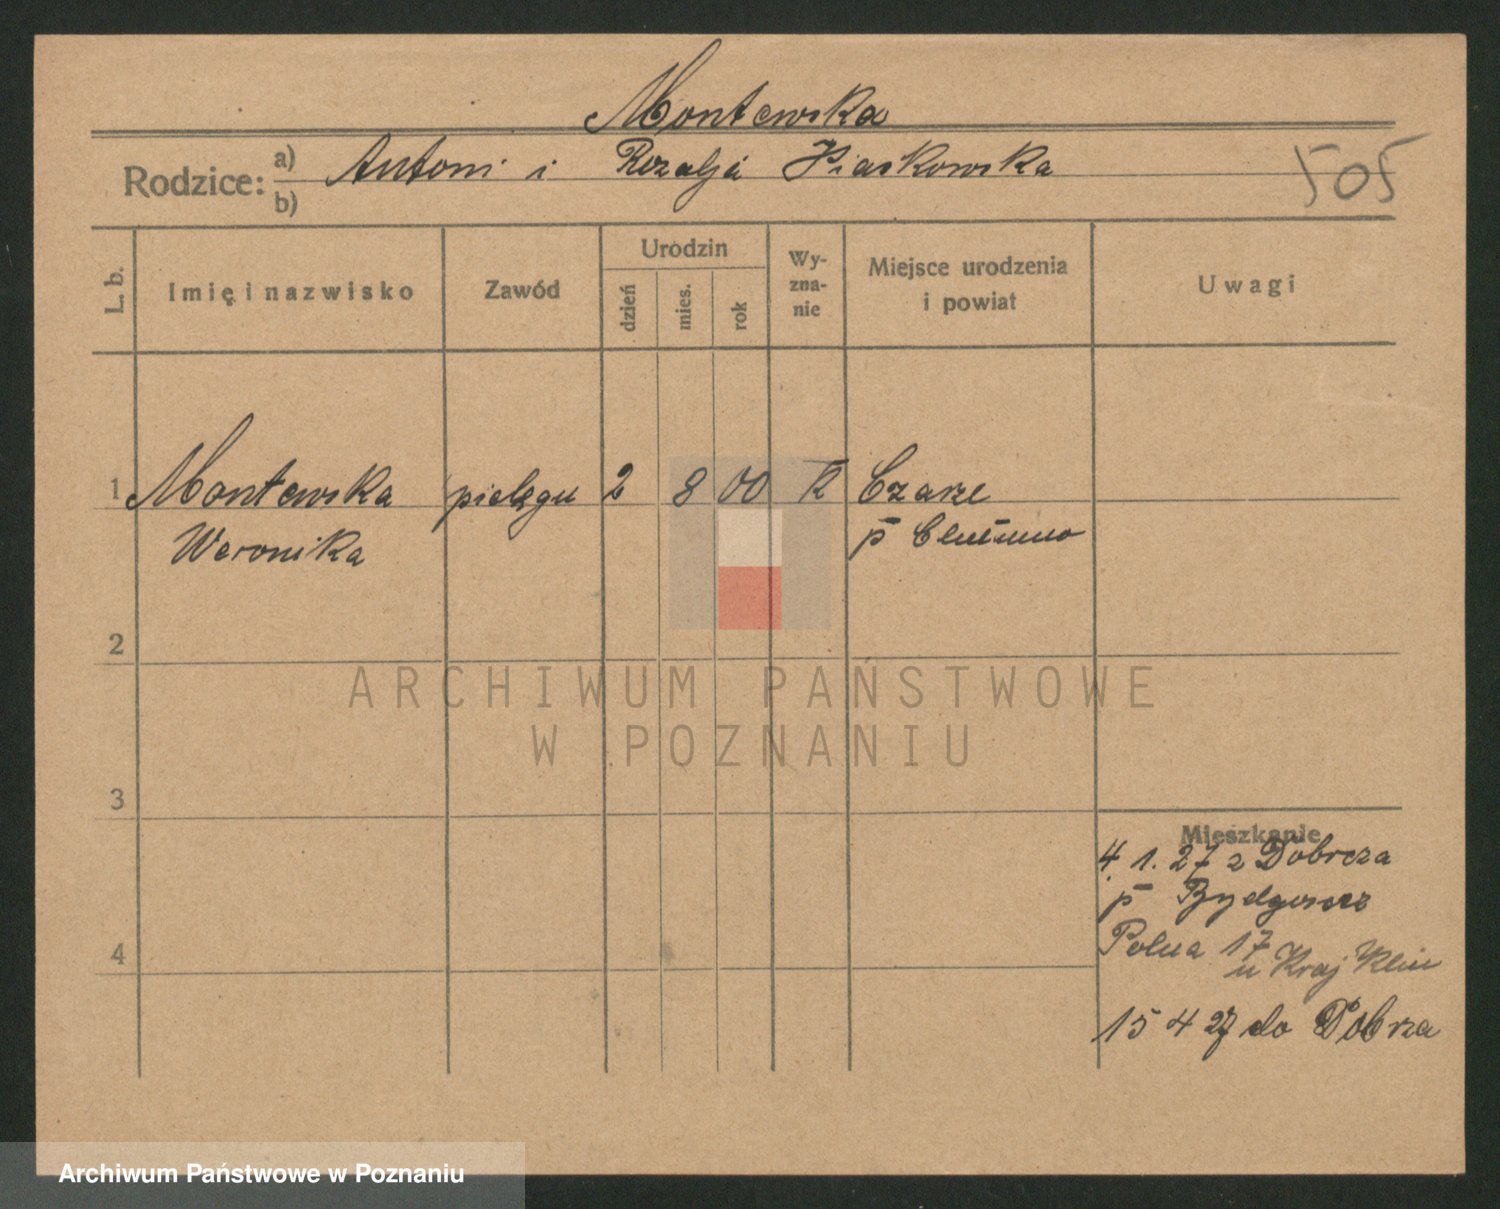 Montewska
Rodzice: a) b) Antoni i Rozalja Piaskowska
505
L. b.
Imię i nazwisko
Zawód
Urodzin
dzień
mies.
rok
Wy-
zna-
nie
Miejsce urodzenia
i powiat
Uwagi
1 Montewska pielęgn 2 8 00 K Czarze
Weronika p Chełmno
2
3
4
Mieszkanie
4. 1. 27 z Dobrcza
p Bydgoszcz
Polna 17
u Kraj Klin
15 4 27 do Dobrza
ARCHIWUM PAŃSTWOWE
W POZNANIU
Archiwum Państwowe w Poznaniu